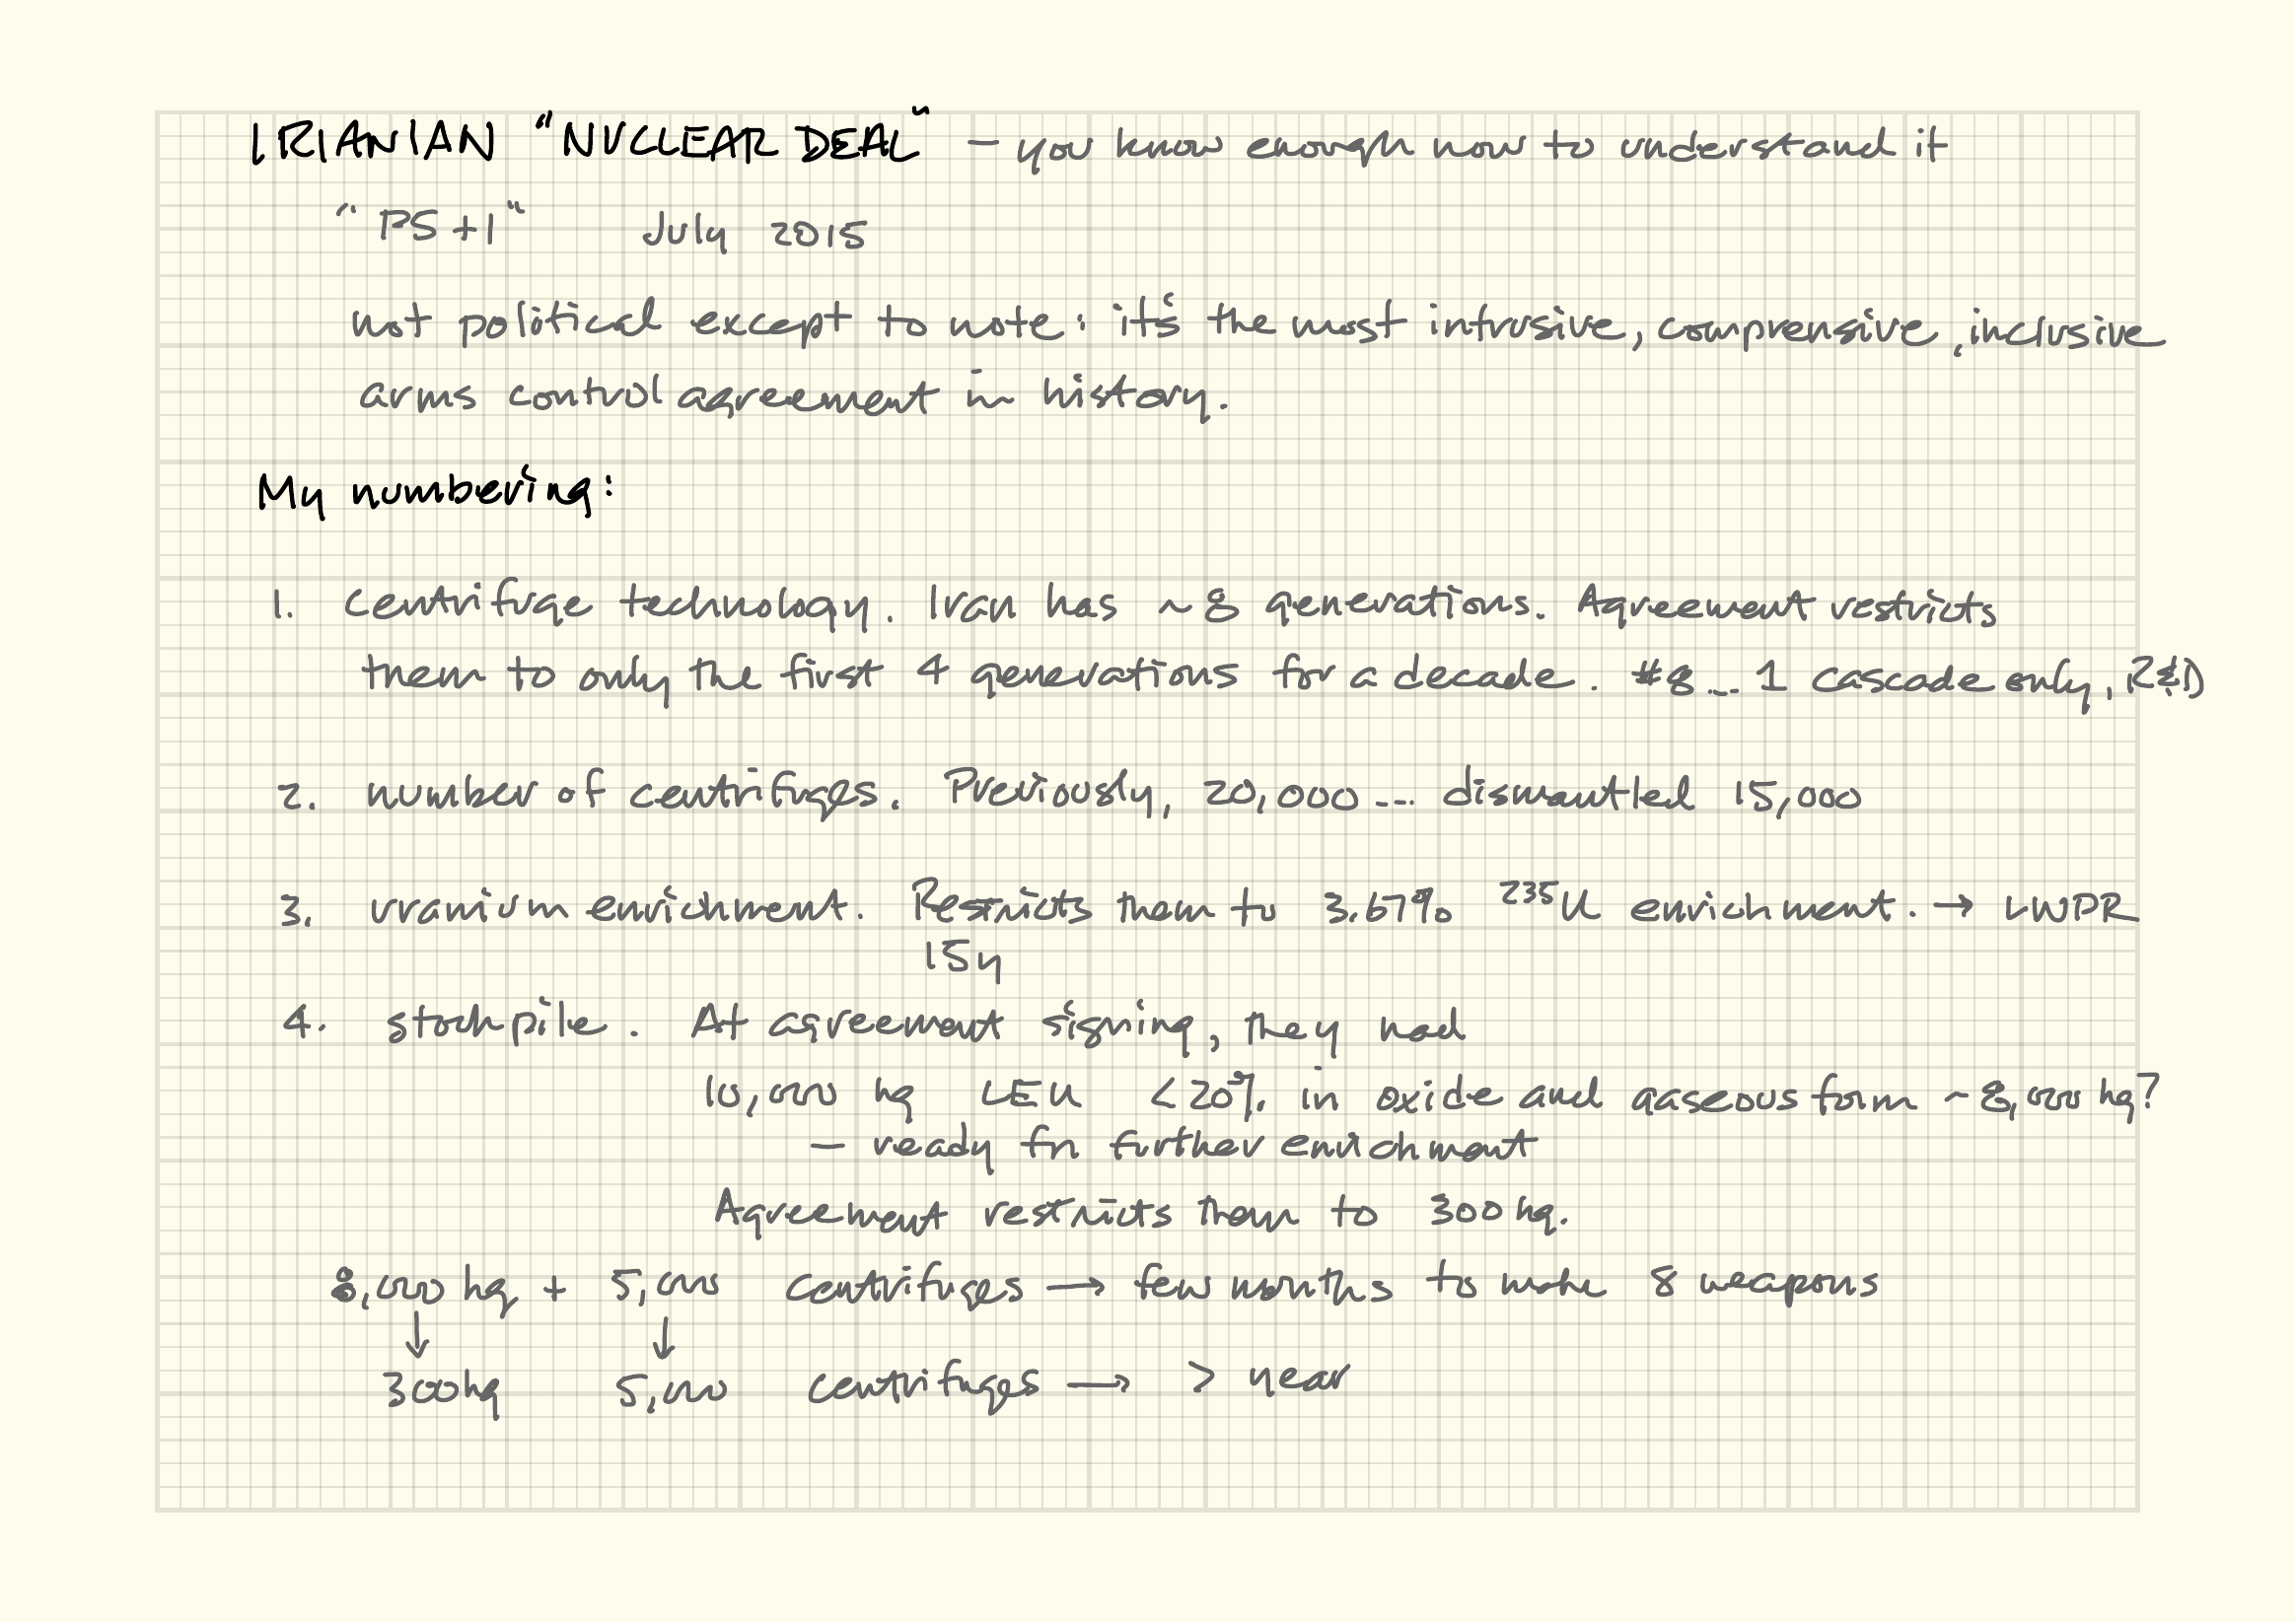 IRIANIAN "NUCLEAR DEAL" – you know enough now to understand it
"P5+1" July 2015
not political except to note: it's the most intrusive, comprensive, inclusive
arms control agreement in history.
My numbering:
1. centrifuge technology. Iran has ~8 generations. Agreement restricts
them to only the first 4 generations for a decade. #8... 1 cascade only, R&D
2. number of centrifuges. Previously, 20,000... dismantled 15,000
3. uranium enrichment. Restricts them to 3.67% ²³⁵U enrichment. → LWPR
15y
4. stockpile. At agreement signing, they had
10,000 kg LEU <20% in oxide and gaseous form ~8,000 kg?
– ready for further enrichment
Agreement restricts them to 300 kg.
8,000 kg + 5,000 centrifuges → few months to make 8 weapons
↓ ↓
300 kg 5,000 centrifuges → > year